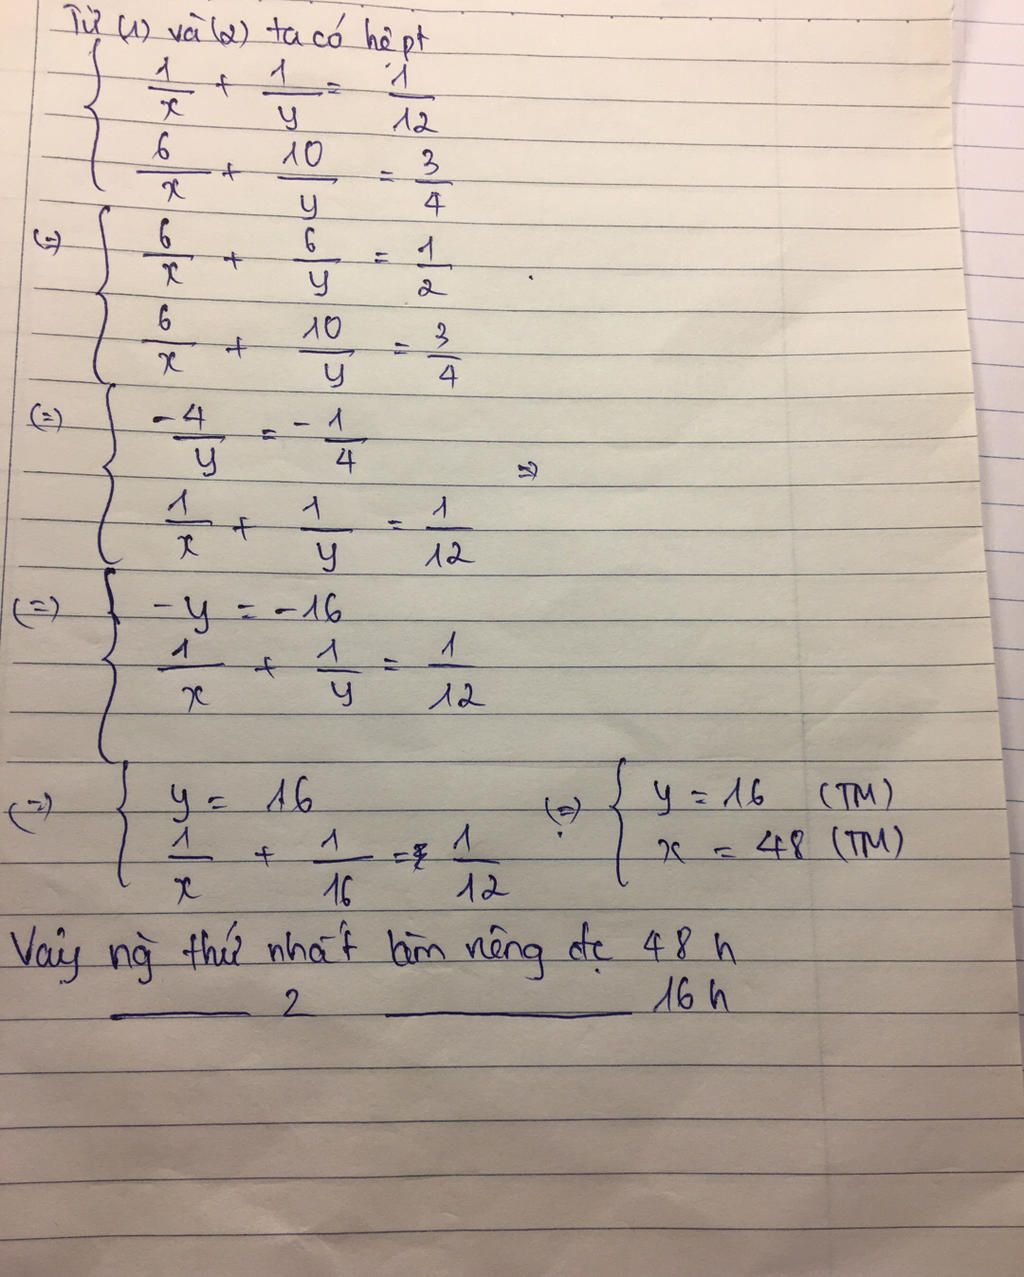 Từ (1) và (2) ta có hệ pt
{ 1/x + 1/y = 1/12
6/x + 10/y = 3/4
(=) { 6/x + 6/y = 1/2
6/x + 10/y = 3/4
(=) { -4/y = -1/4 =>
1/x + 1/y = 1/12
(=) { -y = -16
1/x + 1/y = 1/12
(=) { y = 16 (=) { y = 16 (TM)
1/x + 1/16 = 1/12 x = 48 (TM)
Vậy ng` thứ nhất làm riêng đc 48 h
——— 2 ——— 16 h